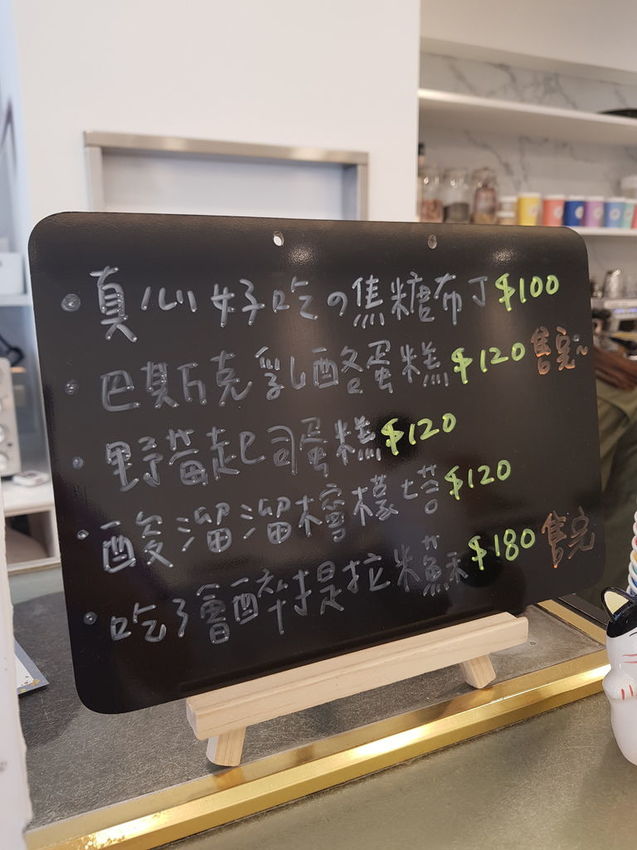 真心好吃の焦糖布丁$100
巴斯克乳酪蛋糕$120售完~
野莓起司蛋糕$120
酸溜溜檸檬塔$120
吃了會醉提拉米蘇$180售完